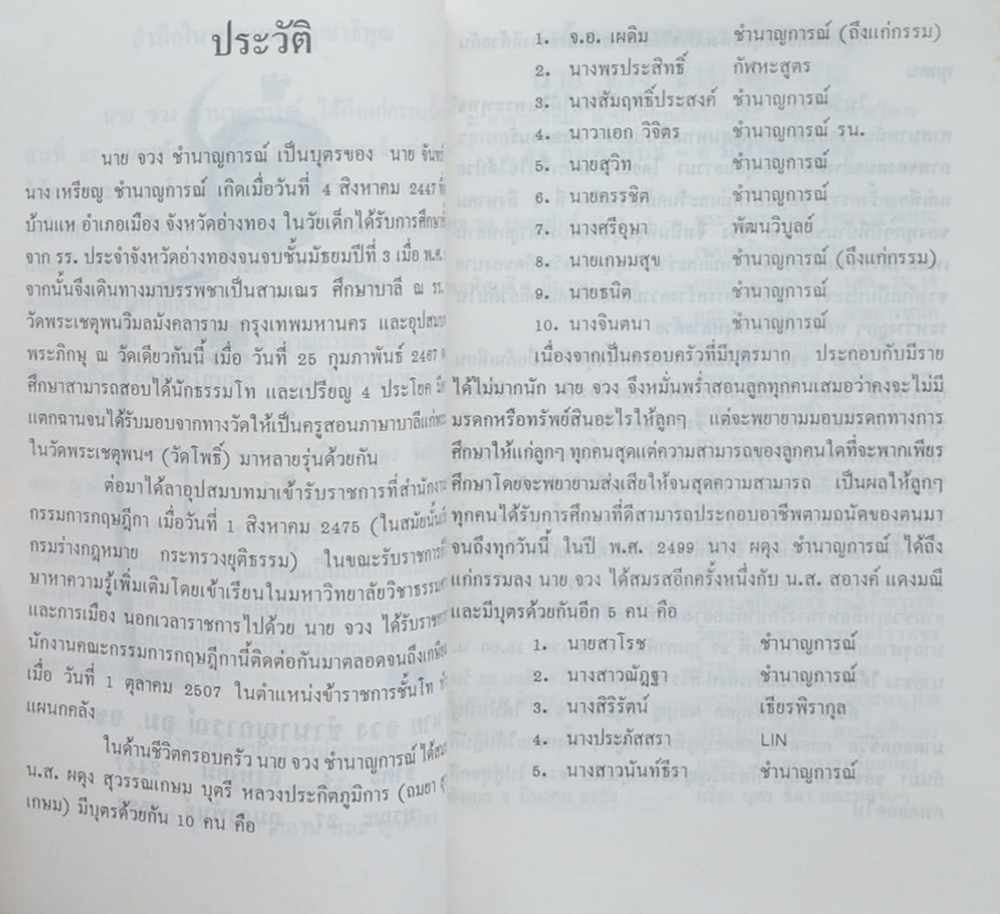 ประวัติ
นาย จวง ชำนาญการณ์ เป็นบุตรของ นาย จันทร์
นาง เหรียญ ชำนาญการณ์ เกิดเมื่อวันที่ 4 สิงหาคม 2447 ที่
บ้านแห อำเภอเมือง จังหวัดอ่างทอง ในวัยเด็กได้รับการศึกษา
จาก รร. ประจำจังหวัดอ่างทองจนจบชั้นมัธยมปีที่ 3 เมื่อ พ.ศ.
จากนั้นจึงเดินทางมาบรรพชาเป็นสามเณร ศึกษาบาลี ณ รร.
วัดพระเชตุพนวิมลมังคลาราม กรุงเทพมหานคร และอุปสมบ
พระภิกษุ ณ วัดเดียวกันนี้ เมื่อ วันที่ 25 กุมภาพันธ์ 2467
ศึกษาสามารถสอบได้นักธรรมโท และเปรียญ 4 ประโยค
แตกฉานจนได้รับมอบจากทางวัดให้เป็นครูสอนภาษาบาลีแก่พระ
ในวัดพระเชตุพนฯ (วัดโพธิ์) มาหลายรุ่นด้วยกัน
ต่อมาได้ลาอุปสมบทมาเข้ารับราชการที่สำนักงาน
กรรมการกฤษฎีกา เมื่อวันที่ 1 สิงหาคม 2475 (ในสมัยนั้น
กรมร่างกฎหมาย กระทรวงยุติธรรม) ในขณะรับราชการ
ษาหาความรู้เพิ่มเติมโดยเข้าเรียนในมหาวิทยาลัยวิชาธรรม
และการเมือง นอกเวลาราชการไปด้วย นาย จวง ได้รับราช
นักงานคณะกรรมการกฤษฎีกานี้ติดต่อกันมาตลอดจนถึงเกษีย
เมื่อ วันที่ 1 ตุลาคม 2507 ในตำแหน่งข้าราชการชั้นโท
แผนกคลัง
ในด้านชีวิตครอบครัว นาย จวง ชำนาญการณ์ ได้สม
น.ส. ผดุง สุวรรณเกษม บุตรี หลวงประกิตภูมิการ (ถมยา
เกษม) มีบุตรด้วยกัน 10 คน คือ
1. จ.อ. เผดิม ชำนาญการณ์ (ถึงแก่กรรม)
2. นางพรประสิทธิ์ กัฬหะสูตร
3. นางสัมฤทธิ์ประสงค์ ชำนาญการณ์
4. นาวาเอก วิจิตร ชำนาญการณ์ รน.
5. นายสุวิท ชำนาญการณ์
6. นายครรชิต ชำนาญการณ์
7. นางศรีอุษา พัฒนวิบูลย์
8. นายเกษมสุข ชำนาญการณ์ (ถึงแก่กรรม)
9. นายธนิต ชำนาญการณ์
10. นางจินตนา ชำนาญการณ์
เนื่องจากเป็นครอบครัวที่มีบุตรมาก ประกอบกับมีราย
ได้ไม่มากนัก นาย จวง จึงหมั่นพร่ำสอนลูกทุกคนเสมอว่าคงจะไม่มี
มรดกหรือทรัพย์สินอะไรให้ลูกๆ แต่จะพยายามมอบมรดกทางการ
ศึกษาให้แก่ลูกๆ ทุกคนสุดแต่ความสามารถของลูกคนใดที่จะพากเพียร
ศึกษาโดยจะพยายามส่งเสียให้จนสุดความสามารถ เป็นผลให้ลูกๆ
ทุกคนได้รับการศึกษาที่ดีสามารถประกอบอาชีพตามถนัดของตนมา
จนถึงทุกวันนี้ ในปี พ.ศ. 2499 นาง ผดุง ชำนาญการณ์ ได้ถึง
แก่กรรมลง นาย จวง ได้สมรสอีกครั้งหนึ่งกับ น.ส. สอางค์ แดงมณี
และมีบุตรด้วยกันอีก 5 คน คือ
1. นายสาโรช ชำนาญการณ์
2. นางสาวณัฎฐา ชำนาญการณ์
3. นางสิริรัตน์ เธียรพิรากุล
4. นางประภัสสรา LIN
5. นางสาวนันท์ธีรา ชำนาญการณ์